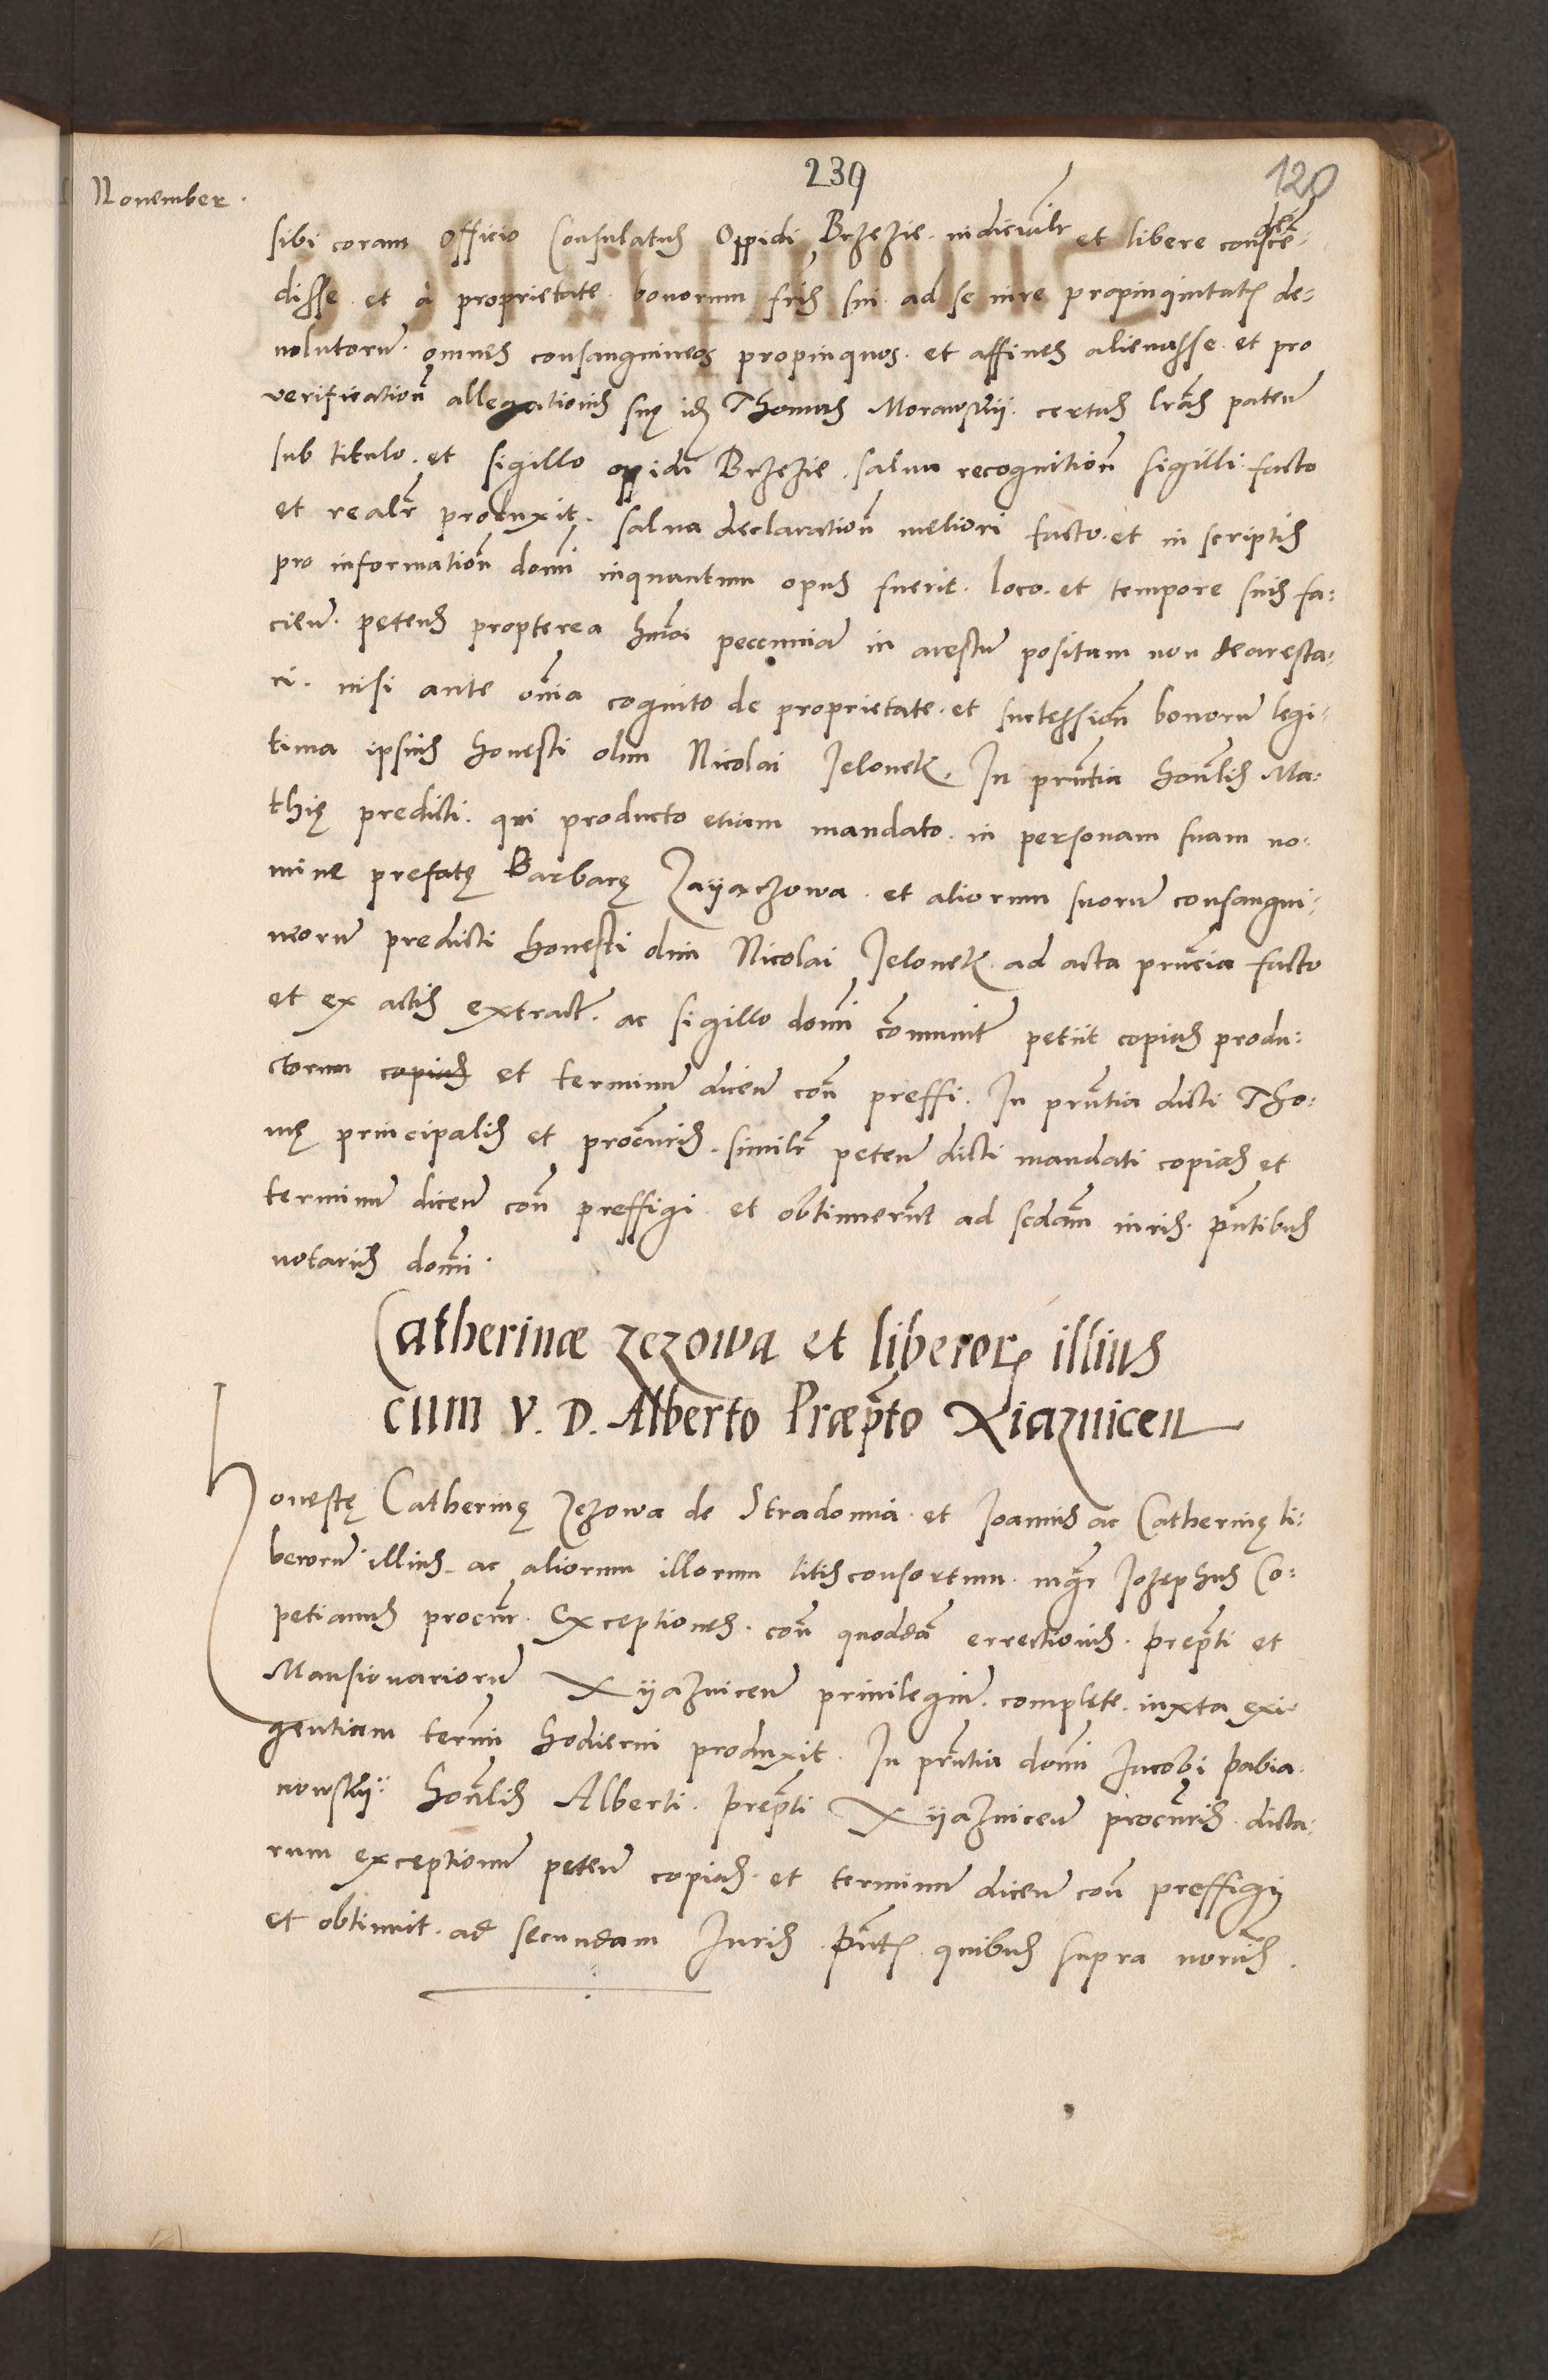 239
120
November.
sibi coram Officio Consulatus Oppidi Brzezie. iudicialr et libere conscen-
den
disse et à proprietate bonorum fris sui ad se iure propinquitatis de-
volutorum omnes consanguineos propinquos. et affines alienasse. et pro
verification allegationis suę id Thomas Morawskij. certas lras paten
sub titulo. et sigillo oppidi Brzezie. salva recognition sigilli facto
et realr produxit. salva declaration meliori facto. et in scriptis
pro information domi inquantum opus fuerit. loco. et tempore suis fa-
cien. petens propterea hmoi pecuniam in arestum positam non dearesta-
ri. nisi ante omia cognito de proprietate. et succession bonorum legi-
tima ipsius honesti olim Nicolai Jelonek. In prntia honlis Ma-
thię predicti. qui producto etiam mandato. in personam suam no-
mine prefatę Barbarę Zayaczowa. et aliorum suorum consangui-
neorum predicti honesti olim Nicolai Jelonek. ad acta prncia facto
et ex actis extract. ac sigillo domi communit petiit copias produ-
ctorum copias et terminum dicen con preffi. In prntia dicti Tho-
mę principalis et procuris. similr peten dicti mandati copias et
terminum dicen con preffigi et obtinuerunt ad scdam iuris. pntibus
notariis domi.
Catherinæ zezowa et liberor illius
cum V. D. Alberto Præpto Xiaznicen
Honestę Catherinę Zezowa de Stradomia et Joannis ac Catherinę li-
berorum illius ac aliorum illorum litisconsortum. mgr Jozephus Co-
petianus procur. Exceptiones. con quoddam errectionis. prepti et
Mansionariorum Xijaznicen privilegium. complete. iuxta exi-
gentiam termi hodierni produxit. In prntia domi Jacobi Pabia-
nowskij. honlis Alberti. prepti Xijaznicen procuris. dicta-
rum exceptionum peten copias. et terminum dicen con preffigi
et obtinuit. ad secundam Juris pntis quibus supra noriis.